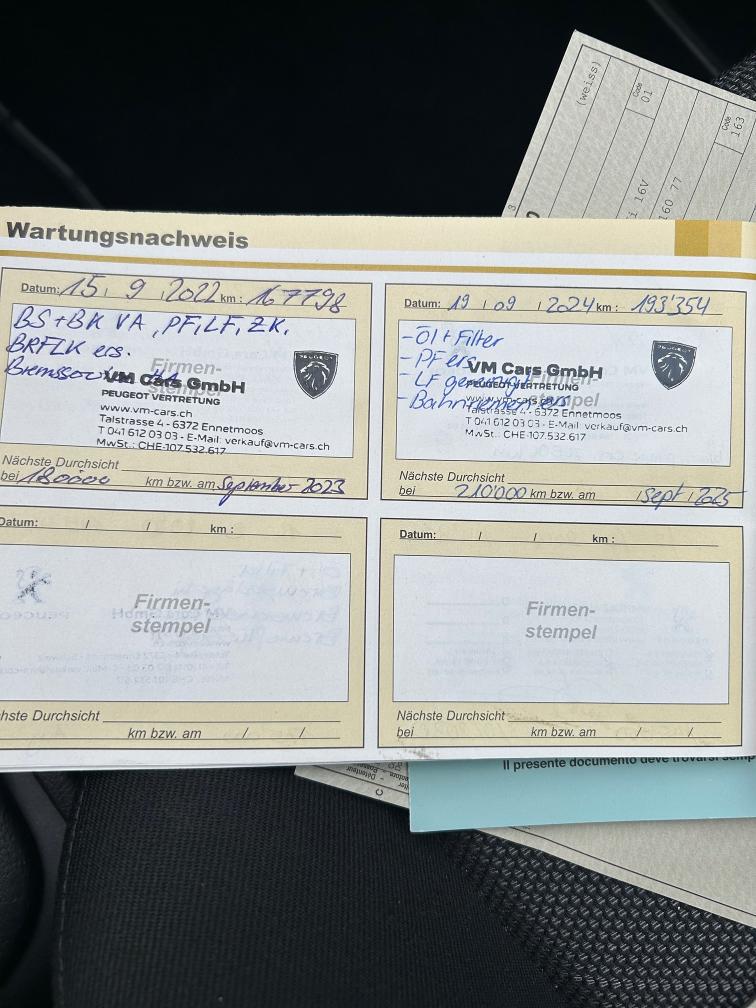 (weiss)
Code
01
Code
163
3
i 16V
160 77
Wartungsnachweis
Datum: 15 / 9 / 2022 km : 167798
BS + BK VA, PF, LF, ZK,
BRFLK ers.
Firmen-
stempel
VM Cars GmbH
PEUGEOT VERTRETUNG
www.vm-cars.ch
Talstrasse 4 - 6372 Ennetmoos
T 041 612 03 03 - E-Mail: verkauf@vm-cars.ch
MwSt.: CHE-107.532.617
PEUGEOT
Nächste Durchsicht
bei 180000 km bzw. am September 2023
Datum: 19 / 09 / 2024 km : 193'354
- Öl + Filter
- PF ers
- LF
Firmen-
stempel
VM Cars GmbH
PEUGEOT VERTRETUNG
www.vm-cars.ch
Talstrasse 4 - 6372 Ennetmoos
T 041 612 03 03 - E-Mail: verkauf@vm-cars.ch
MwSt.: CHE-107.532.617
PEUGEOT
Nächste Durchsicht
bei 210'000 km bzw. am / Sept / 2025
Datum: / / km :
Firmen-
stempel
hste Durchsicht
km bzw. am / /
Datum: / / km :
Firmen-
stempel
Nächste Durchsicht
bei km bzw. am / /
Il presente documento deve trovarsi semp
Détenteur
C